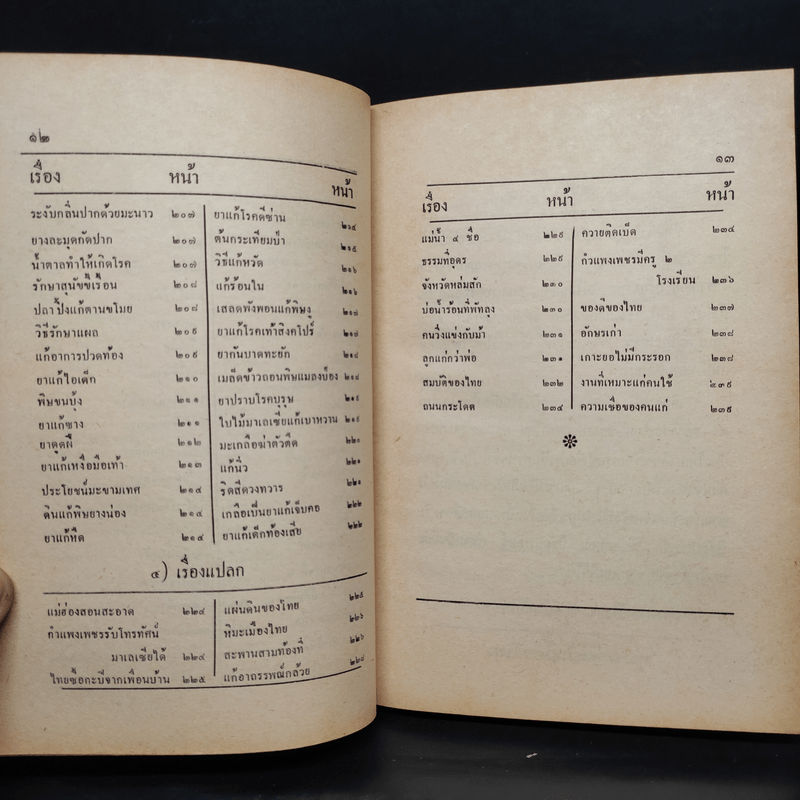 ๑๒
เรื่อง หน้า
ระงับกลิ่นปากด้วยมะนาว ๒๐๗
ยางละมุดกัดปาก ๒๐๗
น้ำตาลทำให้เกิดโรค ๒๐๗
รักษาสุนัขขี้เรื้อน ๒๐๘
ปลาปิ้งแก้ตานขโมย ๒๐๘
วิธีรักษาแผล ๒๐๙
แก้อาการปวดท้อง ๒๐๙
ยาแก้ไอเด็ก ๒๑๐
พิษขนบุ้ง ๒๑๑
ยาแก้ซาง ๒๑๑
ยาดูดฝี ๒๑๒
ยาแก้เหงื่อมือเท้า ๒๑๓
ประโยชน์มะขามเทศ ๒๑๔
ดินแก้พิษยางน่อง ๒๑๔
ยาแก้หืด ๒๑๔
หน้า
ยาแก้โรคดีซ่าน ๒๑๔
ต้นกระเทียมบ้า ๒๑๕
วิธีแก้หวัด ๒๑๖
แก้ร้อนใน ๒๑๖
เสลดพังพอนแก้พิษงู ๒๑๗
ยาแก้โรคเท้าสิงคโปร์ ๒๑๗
ยากันบาดทะยัก ๒๑๘
เมล็ดข้าวถอนพิษแมลงป่อง ๒๑๘
ยาปราบโรคบุรุษ ๒๑๙
ใบไม้มาเลเซียแก้เบาหวาน ๒๑๙
มะเกลือฆ่าตัวตืด ๒๒๐
แก้นิ่ว ๒๒๑
ริดสีดวงทวาร ๒๒๑
เกลือเป็นยาแก้เจ็บคอ ๒๒๒
ยาแก้เด็กท้องเสีย ๒๒๒
๕) เรื่องแปลก
แม่ฮ่องสอนสะอาด ๒๒๔
กำแพงเพชรรับโทรทัศน์
มาเลเซียได้ ๒๒๔
ไทยซื้อกะบี่จากเพื่อนบ้าน ๒๒๕
แผ่นดินของไทย ๒๒๕
หิมะเมืองไทย ๒๒๖
สะพานสามท้องที่ ๒๒๖
แก้อาถรรพณ์กล้วย ๒๒๘
๑๓
เรื่อง หน้า
แม่น้ำ ๔ ชื่อ ๒๒๙
ธรรมที่อุดร ๒๒๙
จังหวัดหล่มสัก ๒๓๐
บ่อน้ำร้อนที่พัทลุง ๒๓๐
คนวิ่งแข่งกับม้า ๒๓๑
ลูกแก่กว่าพ่อ ๒๓๑
สมบัติของไทย ๒๓๒
ถนนกระโดด ๒๓๔
หน้า
ควายติดเบ็ด ๒๓๔
กำแพงเพชรมีครู ๒
โรงเรียน ๒๓๖
ของดีของไทย ๒๓๗
อักษรเก่า ๒๓๘
เกาะยอไม่มีกระรอก ๒๓๘
งานที่เหมาะแก่คนใช้ ๒๓๙
ความเชื่อของคนแก่ ๒๓๙